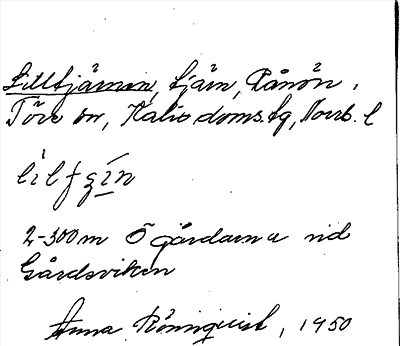 Lilltjärnen, tjärn, Rånön,
Töre sn, Kalix doms.tg, Norrb. l
2-300 m Ö gårdarna vid
Gårdsviken
Anna Rönnquist, 1950